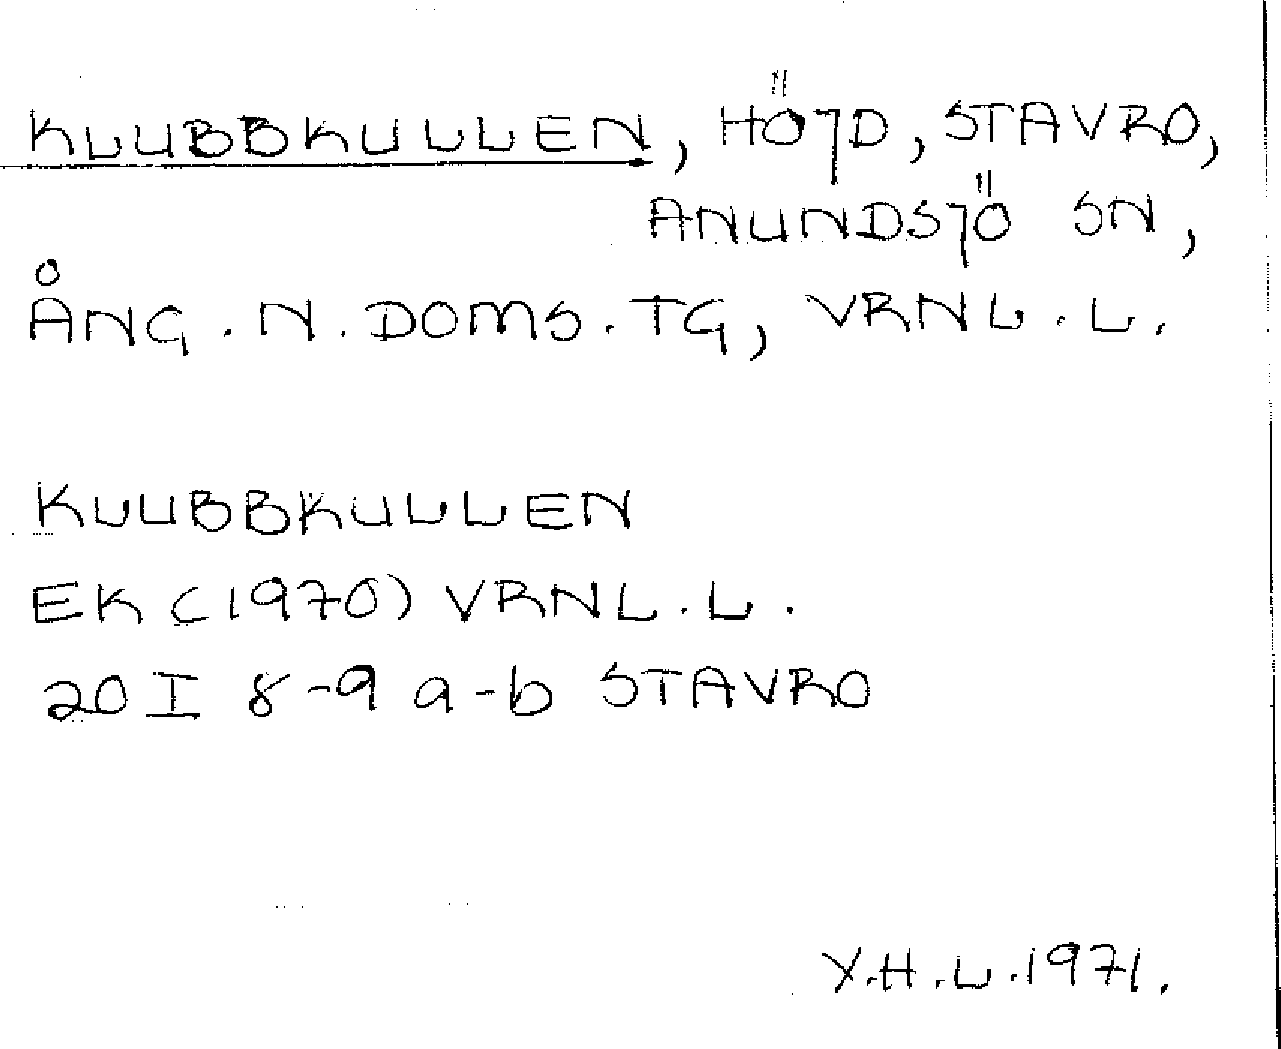 KLUBBKULLEN, HÖJD, STAVRO,
ANUNDSJÖ SN,
ÅNG. N. DOMS. TG, VRNL. L.
KLUBBKULLEN
EK (1970) VRNL. L.
20 I 8-9 a-b STAVRO
Y.H.L. 1971.